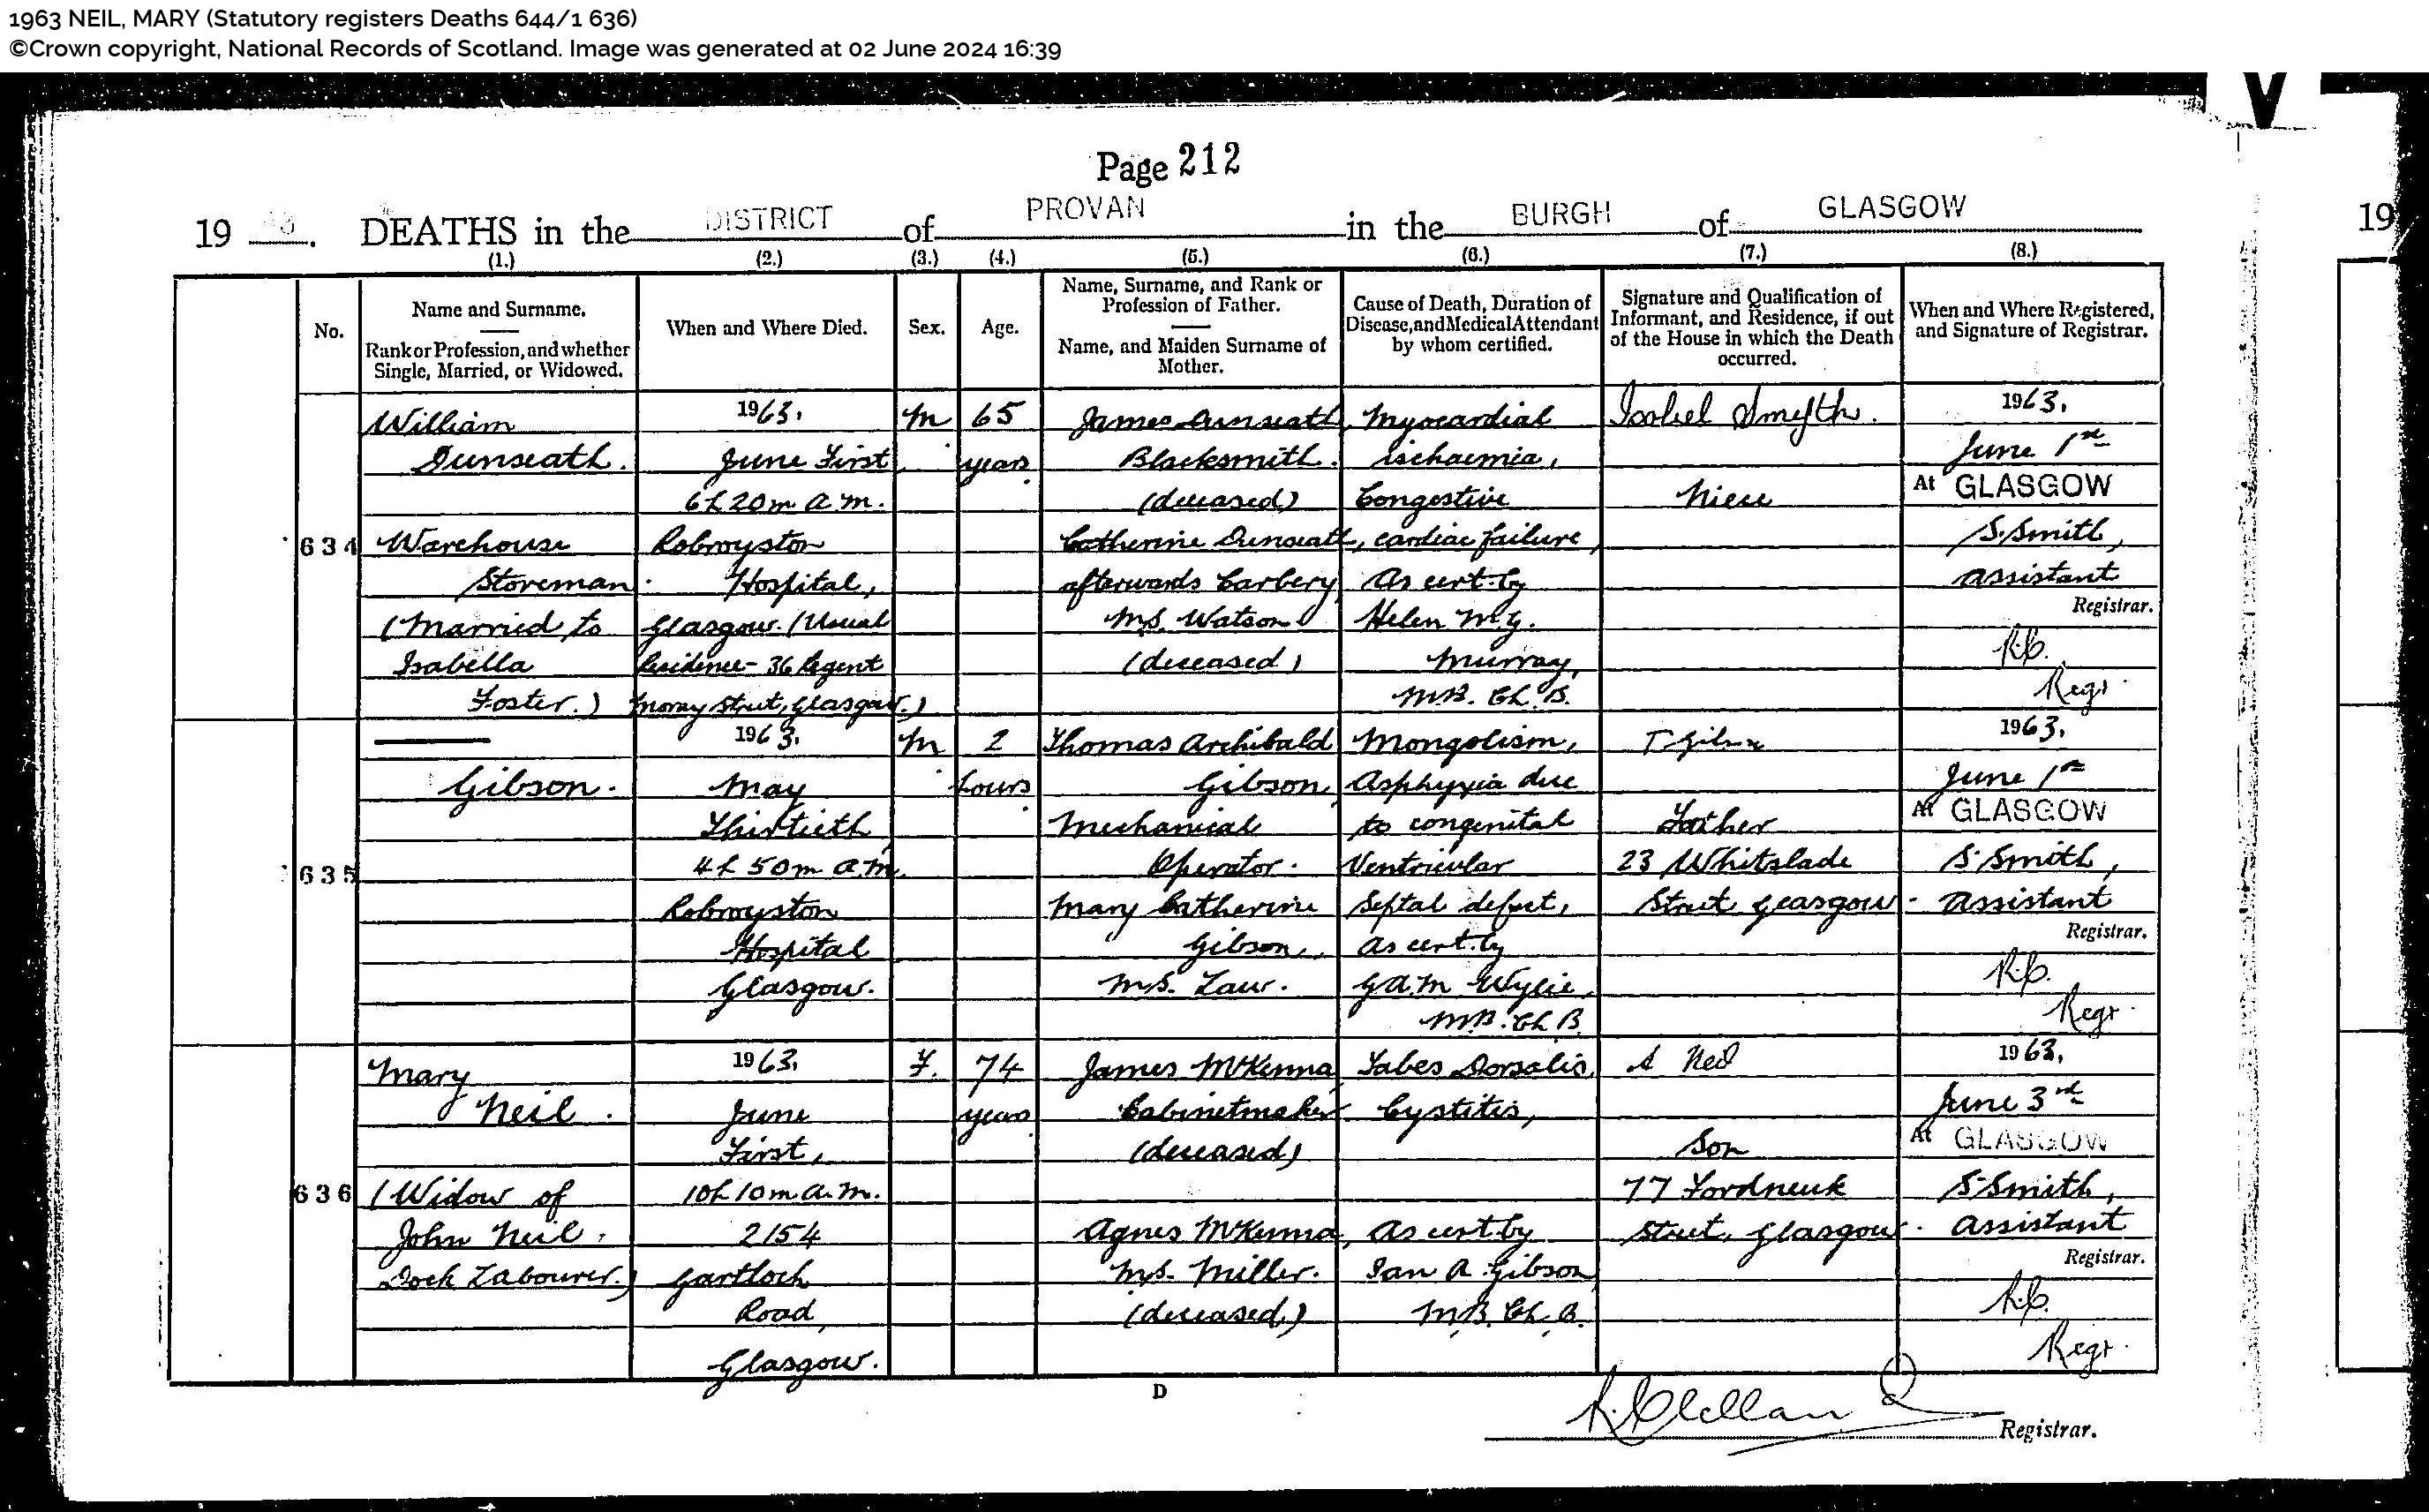 1963 NEIL, MARY (Statutory registers Deaths 644/1 636)
©Crown copyright, National Records of Scotland. Image was generated at 02 June 2024 16:39
Page 212
19 63. DEATHS in the DISTRICT of PROVAN in the BURGH of GLASGOW
19
(1.) (2.) (3.) (4.) (5.) (6.) (7.) (8.)
No.
Name and Surname.
Rank or Profession, and whether
Single, Married, or Widowed.
When and Where Died.
Sex.
Age.
Name, Surname, and Rank or
Profession of Father.
Name, and Maiden Surname of
Mother.
Cause of Death, Duration of
Disease, and Medical Attendant
by whom certified.
Signature and Qualification of
Informant, and Residence, if out
of the House in which the Death
occurred.
When and Where Registered,
and Signature of Registrar.
634
William
Dunseath.
Warehouse
Storeman
(Married to
Isabella
Foster.)
1963.
June First
6h 20m A.M.
Robroyston
Hospital,
Glasgow. (Usual
Residence - 36 Regent
Moray Street, Glasgow.)
M
65
years
James Dunseath
Blacksmith.
(deceased)
Catherine Dunseath,
afterwards Carbery
M.S. Watson
(deceased)
Myocardial
ischaemia,
Congestive
cardiac failure,
As cert. by
Helen M.G.
Murray,
M.B. Ch. B.
Isobel Smyth.
Niece
1963.
June 1st
At GLASGOW
S. Smith,
Assistant
Registrar.
R.C.
Regr.
635
Gibson.
1963.
May
Thirtieth
4h 50m A.M.
Robroyston
Hospital
Glasgow.
M
2
hours
Thomas Archibald
Gibson
Mechanical
Operator.
Mary Catherine
Gibson,
M.S. Law.
Mongolism,
Asphyxia due
to congenital
Ventricular
Septal defect,
As cert. by
G.A.M. Wylie
M.B. Ch B.
T Gibson
Father
23 Whitslade
Street Glasgow.
1963.
June 1st
At GLASGOW
S. Smith,
Assistant
Registrar.
R.C.
Regr.
636
Mary
Neil.
(Widow of
John Neil,
Dock Labourer.)
1963.
June
First,
10h 10m A.M.
2154
Gartloch
Road,
Glasgow.
F.
74
years
James McKenna
Cabinetmaker
(deceased)
Agnes McKenna,
M.S. Miller.
(deceased)
Tabes Dorsalis,
Cystitis,
As cert. by
Ian A. Gibson
M.B. Ch. B.
Neil
Son
77 Fordneuk
Street, Glasgow.
1963.
June 3rd
At GLASGOW
S. Smith,
Assistant
Registrar.
R.C.
Regr.
D
R. Clellan
Registrar.